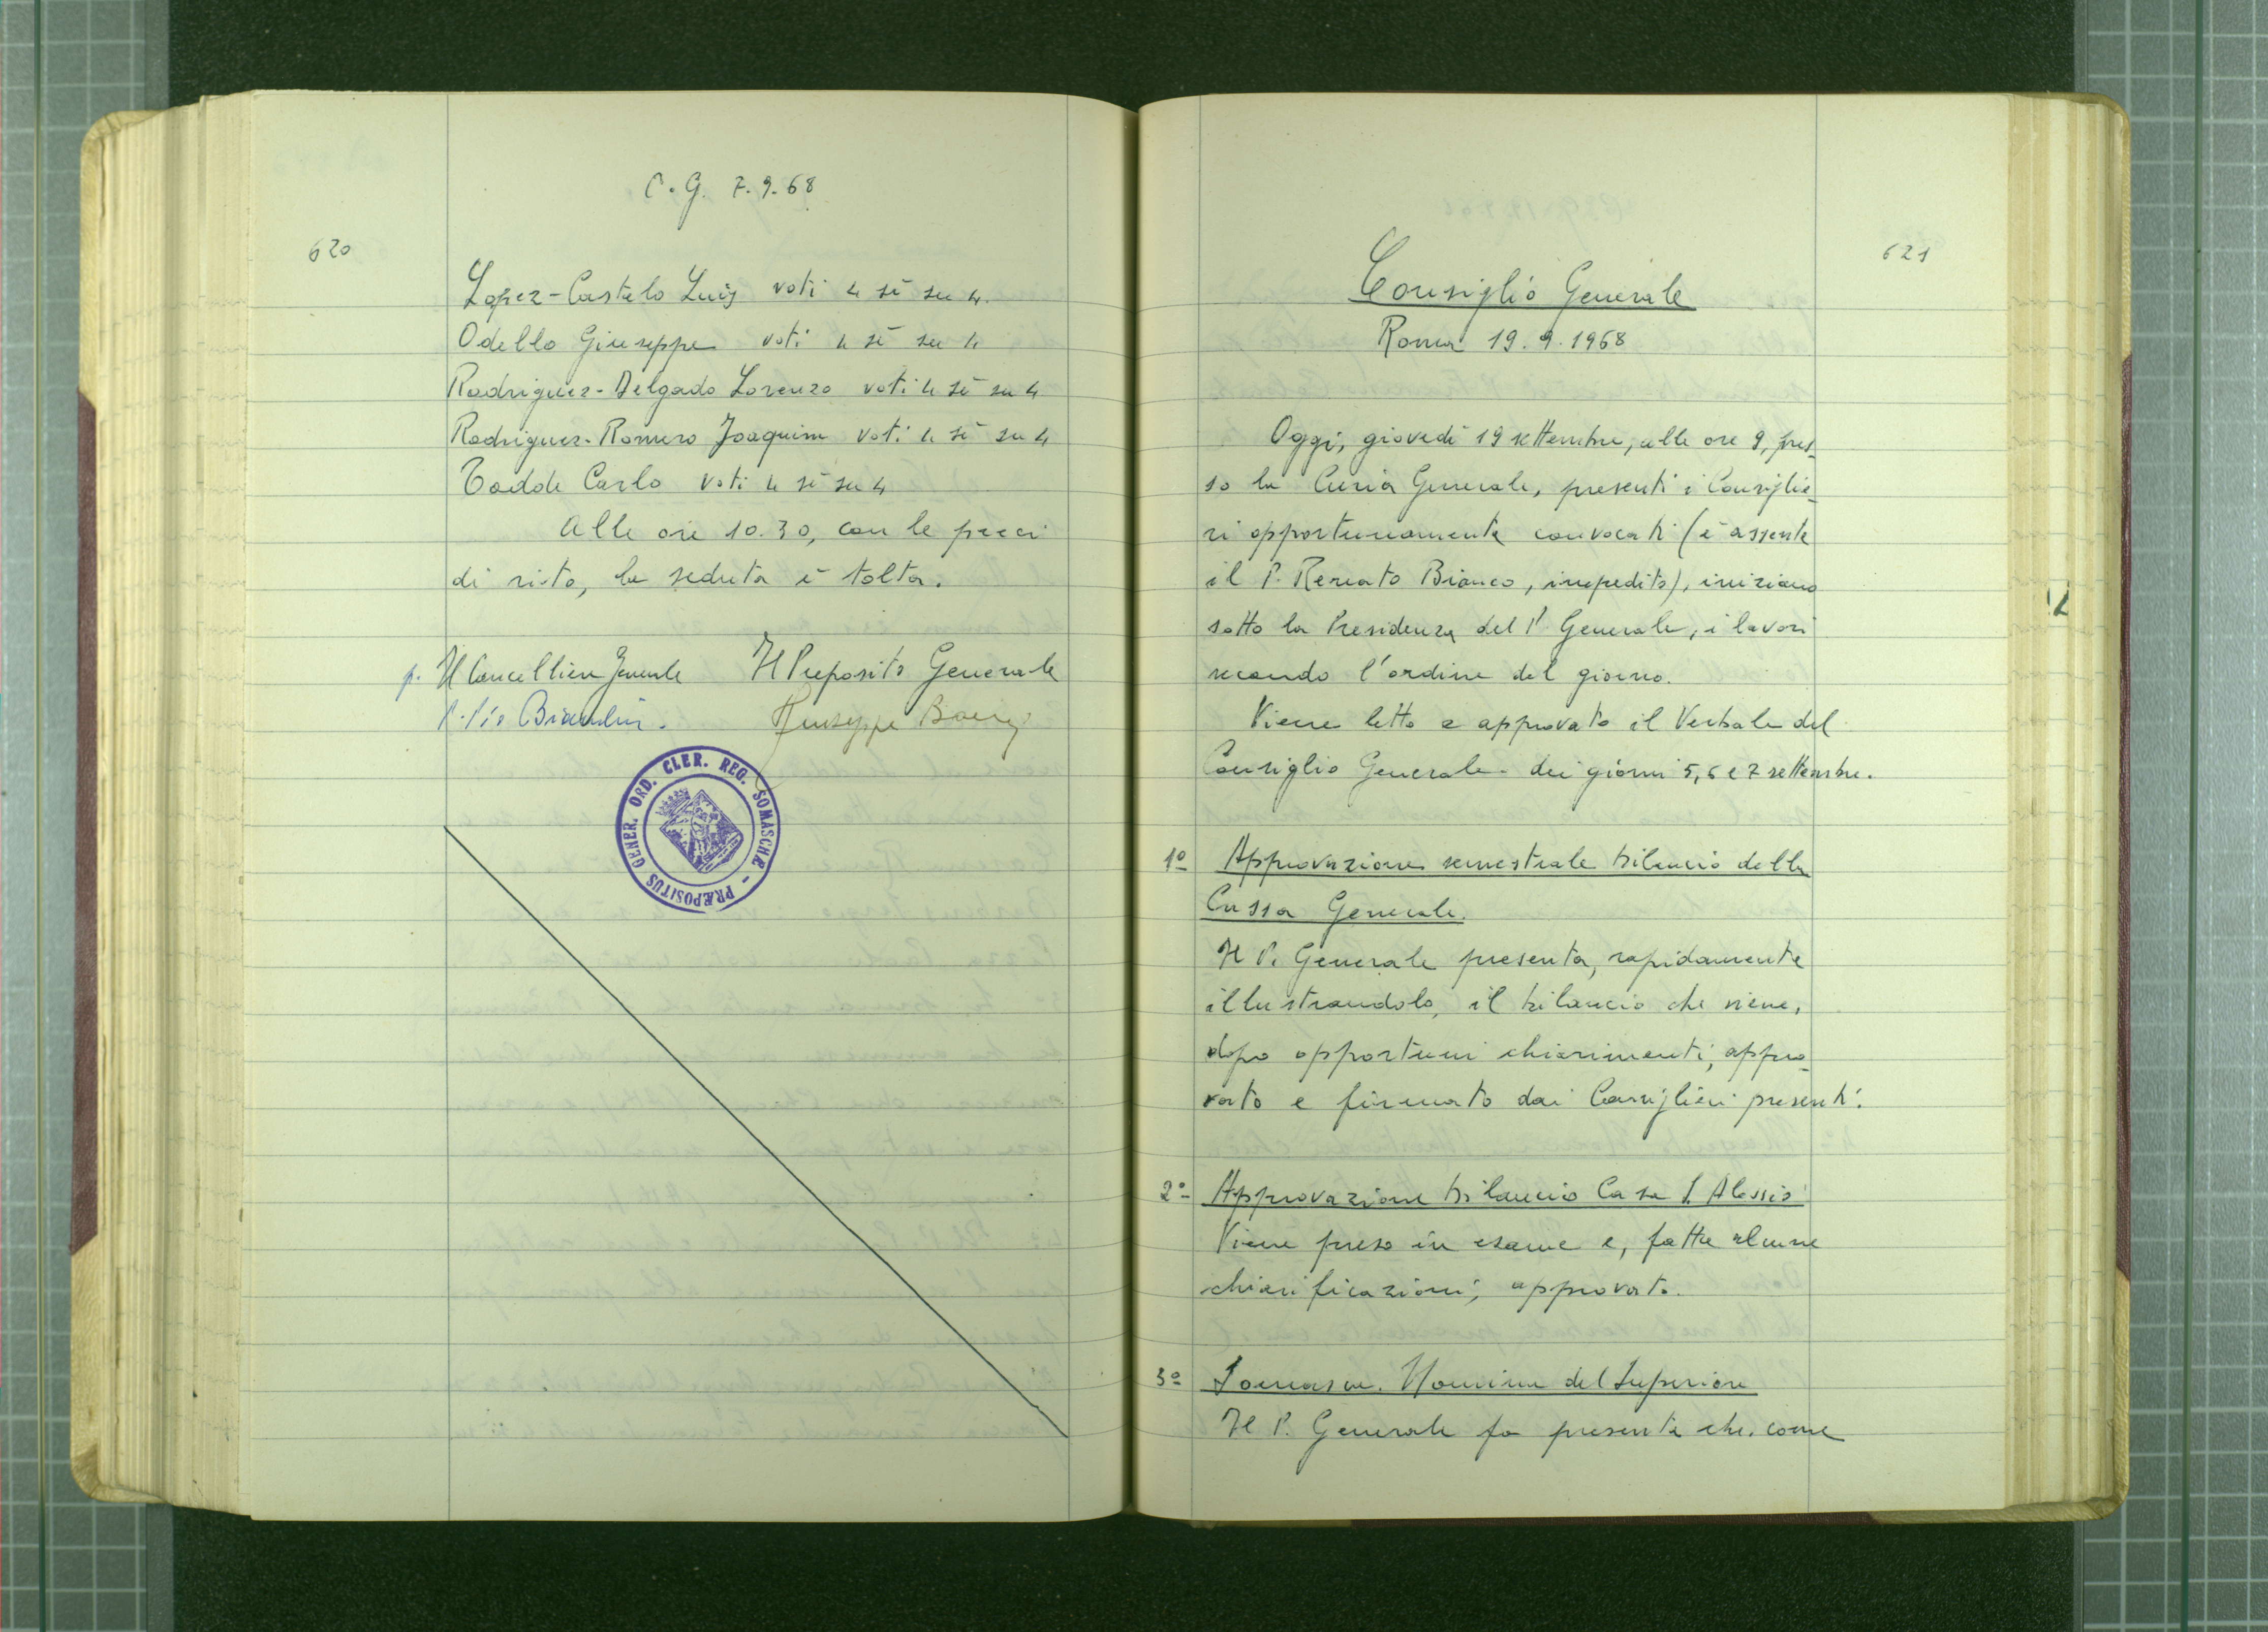 C.G. 7.9.68
620
Lopez-Castelo Luis voti 4 sì su 4.
Odello Giuseppe voti 4 sì su 4
Rodriguez-Delgado Lorenzo voti 4 sì su 4
Rodriguez-Romero Joaquim voti 4 sì su 4
Todde Carlo voti 4 sì su 4
Alle ore 10.30, con le preci
di rito, la seduta è tolta.
p. Il Cancelliere Generale Il Preposito Generale
P. Pio Bianchini. Giuseppe Boeris
PRÆPOSITUS GENER. ORD. CLER. REG. SOMASCHÆ -
621
Consiglio Generale
Roma 19.9.1968
Oggi, giovedì 19 settembre, alle ore 9, pres-
so la Curia Generale, presenti i Consiglie-
ri opportunamente convocati (è assente
il P. Renato Bianco, impedito), iniziano
sotto la Presidenza del P. Generale, i lavori
secondo l'ordine del giorno.
Viene letto e approvato il Verbale del
Consiglio Generale dei giorni 5, 6 e 7 settembre.
1º Approvazione semestrale bilancio della
Cassa Generale.
Il P. Generale presenta, rapidamente
illustrandolo, il bilancio che viene,
dopo opportuni chiarimenti, appro-
vato e firmato dai Consiglieri presenti.
2º Approvazione bilancio Casa S. Alessio
Viene preso in esame e, fatte alcune
chiarificazioni, approvato.
3º Somasca. Nomina del Superiore
Il P. Generale fa presente che, come